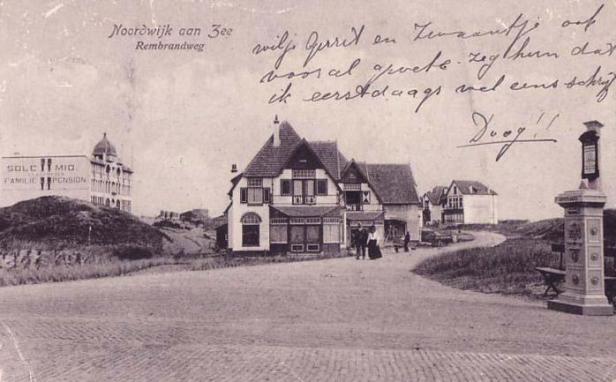 Noordwijk aan Zee
Rembrandweg
wilje Gerrit en Zwaantje ook
vooral groete. zeg hem dat
ik eerstdaags wel eens schrijf
Doog!!
SOLE MIO.
FAMILIE PENSION